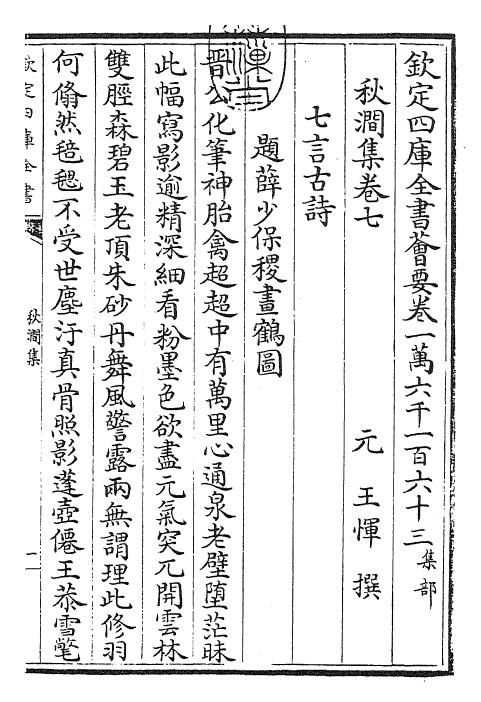 欽定四庫全書薈要卷一萬六千一百六十三集部
秋澗集卷七 元 王惲 撰
七言古詩
題薛少保稷畫鶴圖
晉公化筆神胎禽超超中有萬里心通泉老壁堕茫昧
此幅寫影逾精深細看粉墨色欲盡元氣突兀開雲林
雙脛森碧玉老頂朱砂丹舞風警露兩無謂理此修羽
何翛然毰毸不受世塵汙真骨照影蓬壺僊王恭雪氅
欽定四庫全書
秋澗集
一